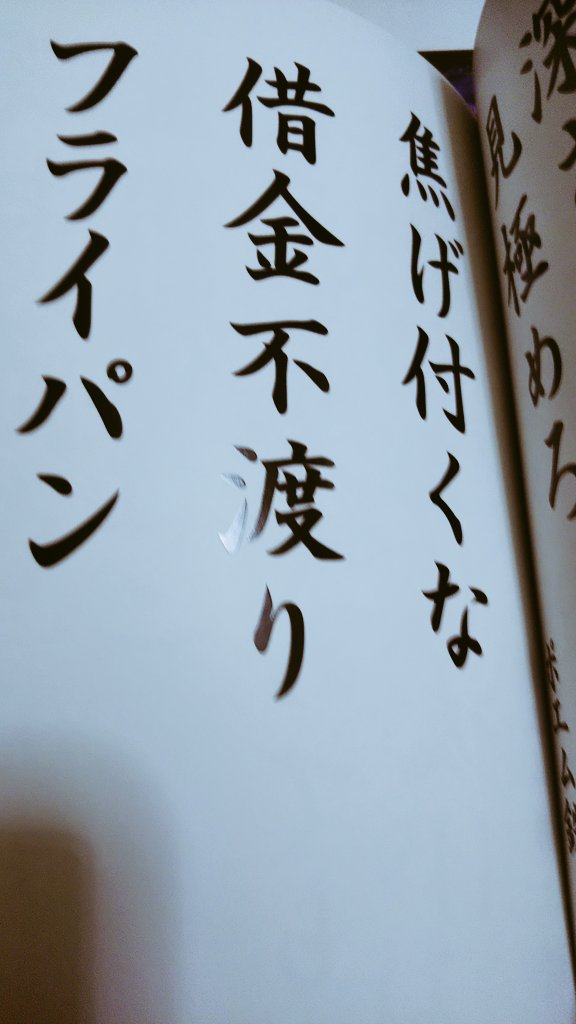 深
見極めろ
焦げ付くな
借金不渡り
フライパン